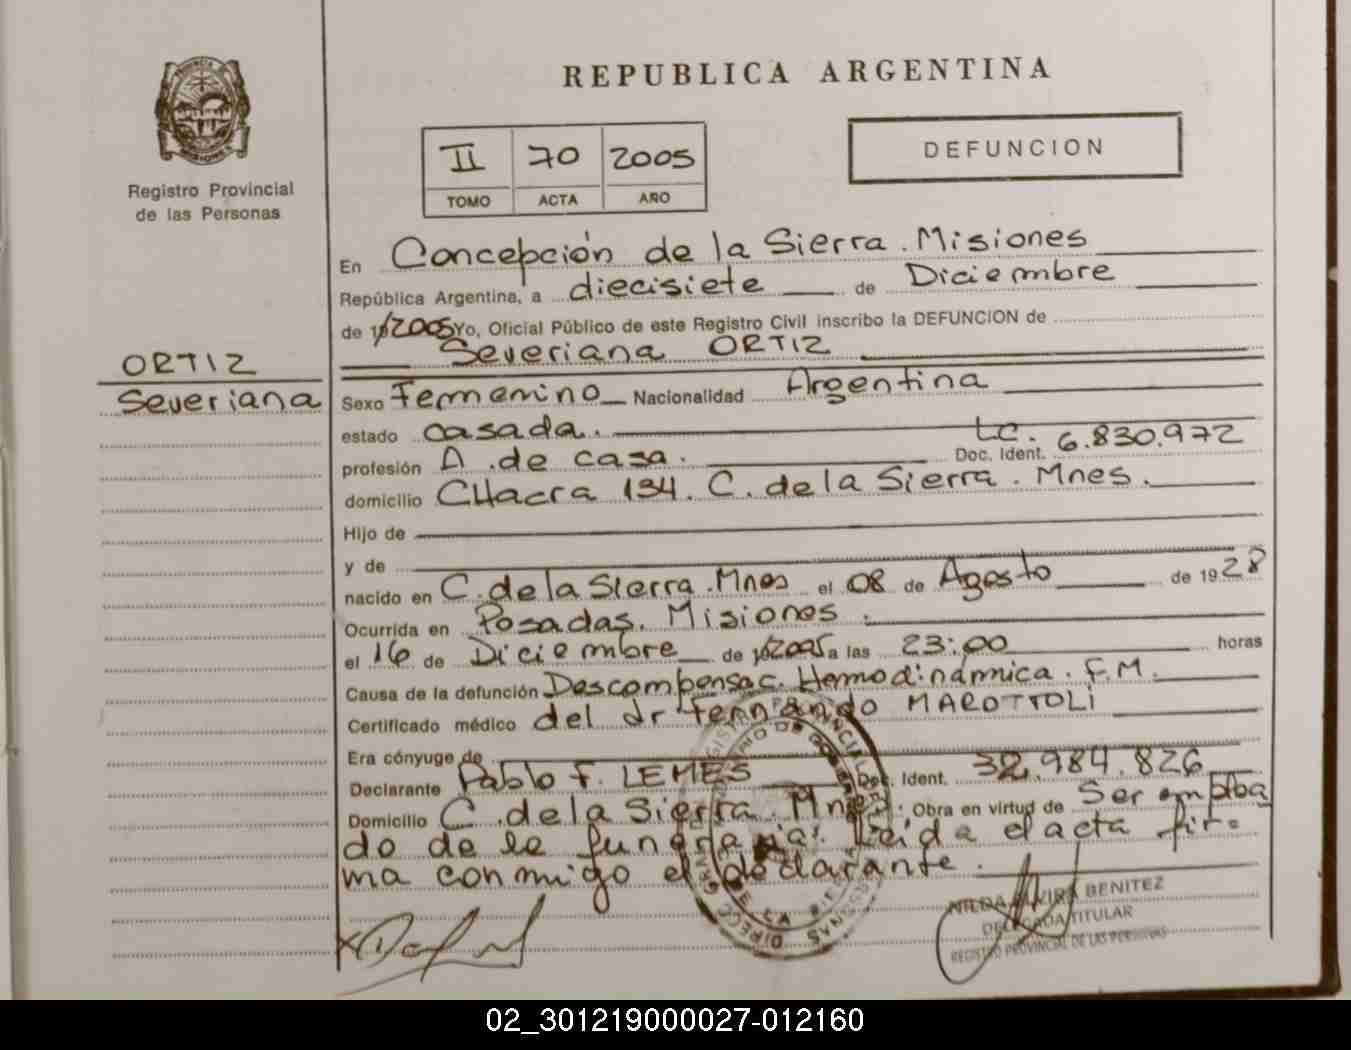 REPUBLICA ARGENTINA
II 70 2005
TOMO ACTA AÑO
DEFUNCION
Registro Provincial
de las Personas
En Concepción de la Sierra. Misiones
República Argentina, a diecisiete de Diciembre
de 2005 Yo, Oficial Público de este Registro Civil inscribo la DEFUNCION de
Severiana ORTIZ
ORTIZ
Severiana
Sexo Femenino Nacionalidad Argentina
estado casada.
profesión A. de casa. Doc. Ident. LC. 6.830.972
domicilio CHacra 134. C. de la Sierra. Mnes.
Hijo de
y de
nacido en C. de la Sierra. Mnes el 08 de Agosto de 1928
Ocurrida en Posadas. Misiones.
el 16 de Diciembre de 2005 a las 23:00 horas
Causa de la defunción Descompensac. Hemodinámica. F.M.
Certificado médico del dr Fernando MAROTTOLI
Era cónyuge de
Declarante Pablo F. LEMES Doc. Ident. 32.984.826
Domicilio C. de la Sierra. Mnes. Obra en virtud de Ser empleba
do de la funeraria. Leída el acta fir=
ma conmigo el declarante.
NILDA ELVIRA BENITEZ
DELEGADA TITULAR
REGISTRO PROVINCIAL DE LAS PERSONAS
02_301219000027-012160